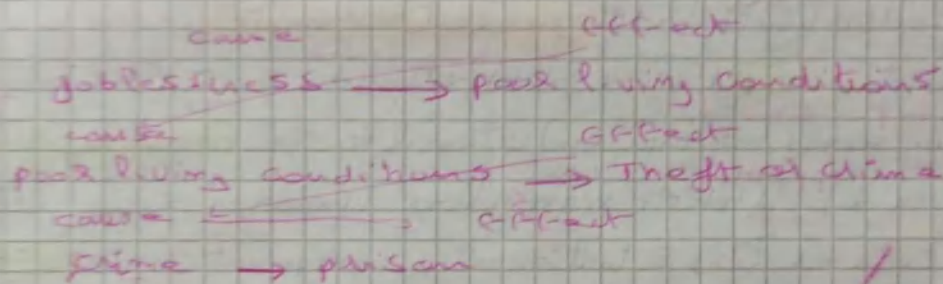 cause effect
joblessness → poor living conditions
cause effect
poor living conditions → Theft or crime
cause effect
crime → prison